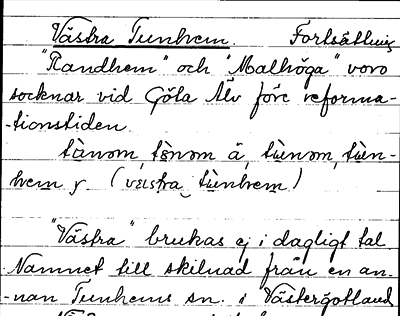 Västra Tunhem. Fortsättning
"Randhem" och "Malhöga" voro
socknar vid Göta Älv före reforma-
-tionstiden.
tùnəm tùnəm ä, tùnəm, tùn-
hem y. (vɛstra tùnhem)
"Västra" brukas ej i dagligt tal
Namnet till skilnad från en an-
-nan Tunhems sn. i Västergötland